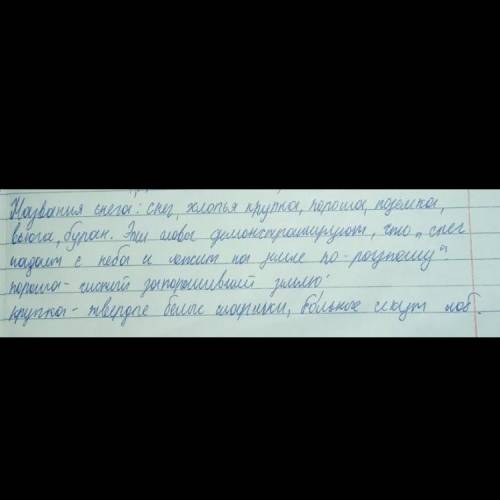 Названия снега: снег, хлопья крупка, пороша, поземка,
вьюга, буран. Эти слова демонстрируют, что „снег
падает с неба и лежит на земле по-разному“
пороша - снежок запорошивший землю;
крупка - твердые белые шарики, больное секут лоб.